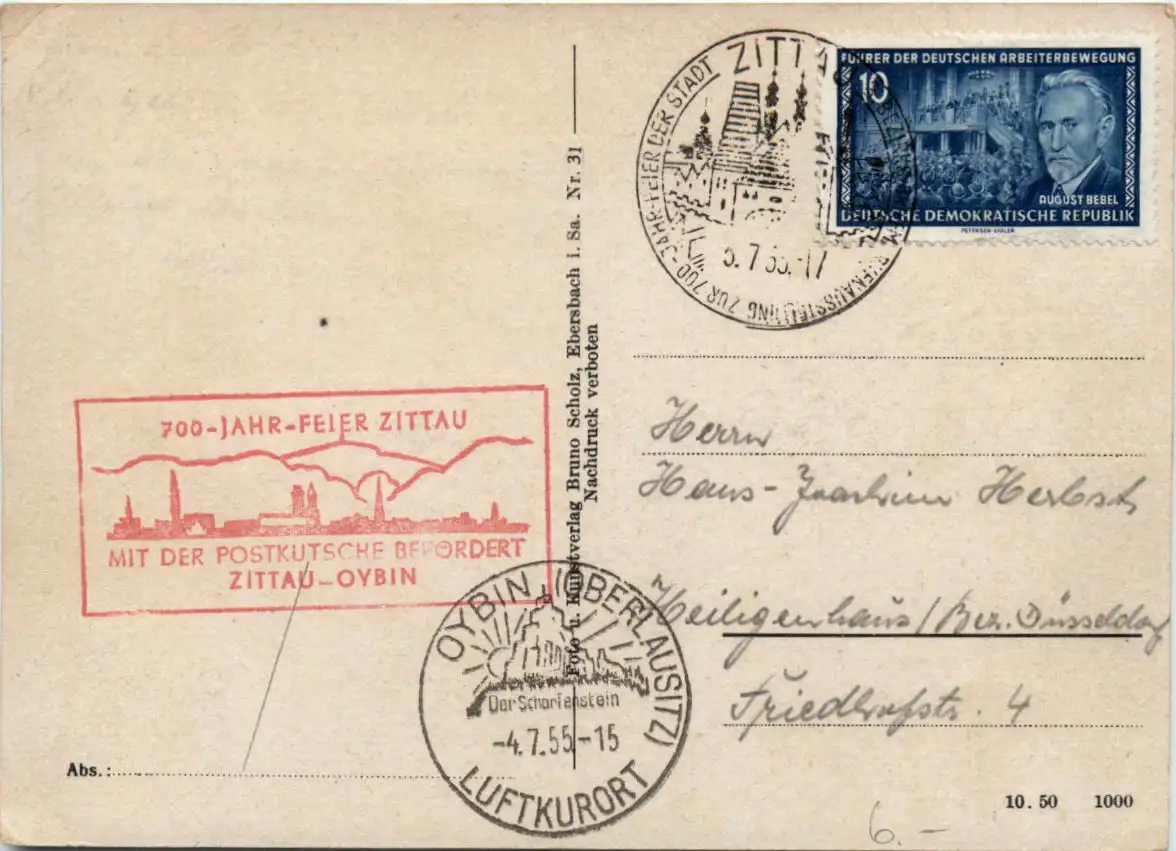 ZITTAU
700-JAHR-FEIER DER STADT
BRIEFMARKENAUSSTELLUNG ZUR
5.7.55.-17
FÜHRER DER DEUTSCHEN ARBEITERBEWEGUNG
10
AUGUST BEBEL
DEUTSCHE DEMOKRATISCHE REPUBLIK
PETERSEN-EIGLER
Foto u. Kunstverlag Bruno Scholz, Ebersbach i. Sa. Nr. 31
Nachdruck verboten
700-JAHR-FEIER ZITTAU
MIT DER POSTKUTSCHE BEFÖRDERT
ZITTAU-OYBIN
OYBIN (OBERLAUSITZ)
Der Scharfenstein
-4.7.55.-15
LUFTKURORT
Herrn
Hans-Joachim Herbst
Heiligenhaus/Bez. Düsseldorf
Friedhofstr. 4
Abs.:
10.50 1000
6.-